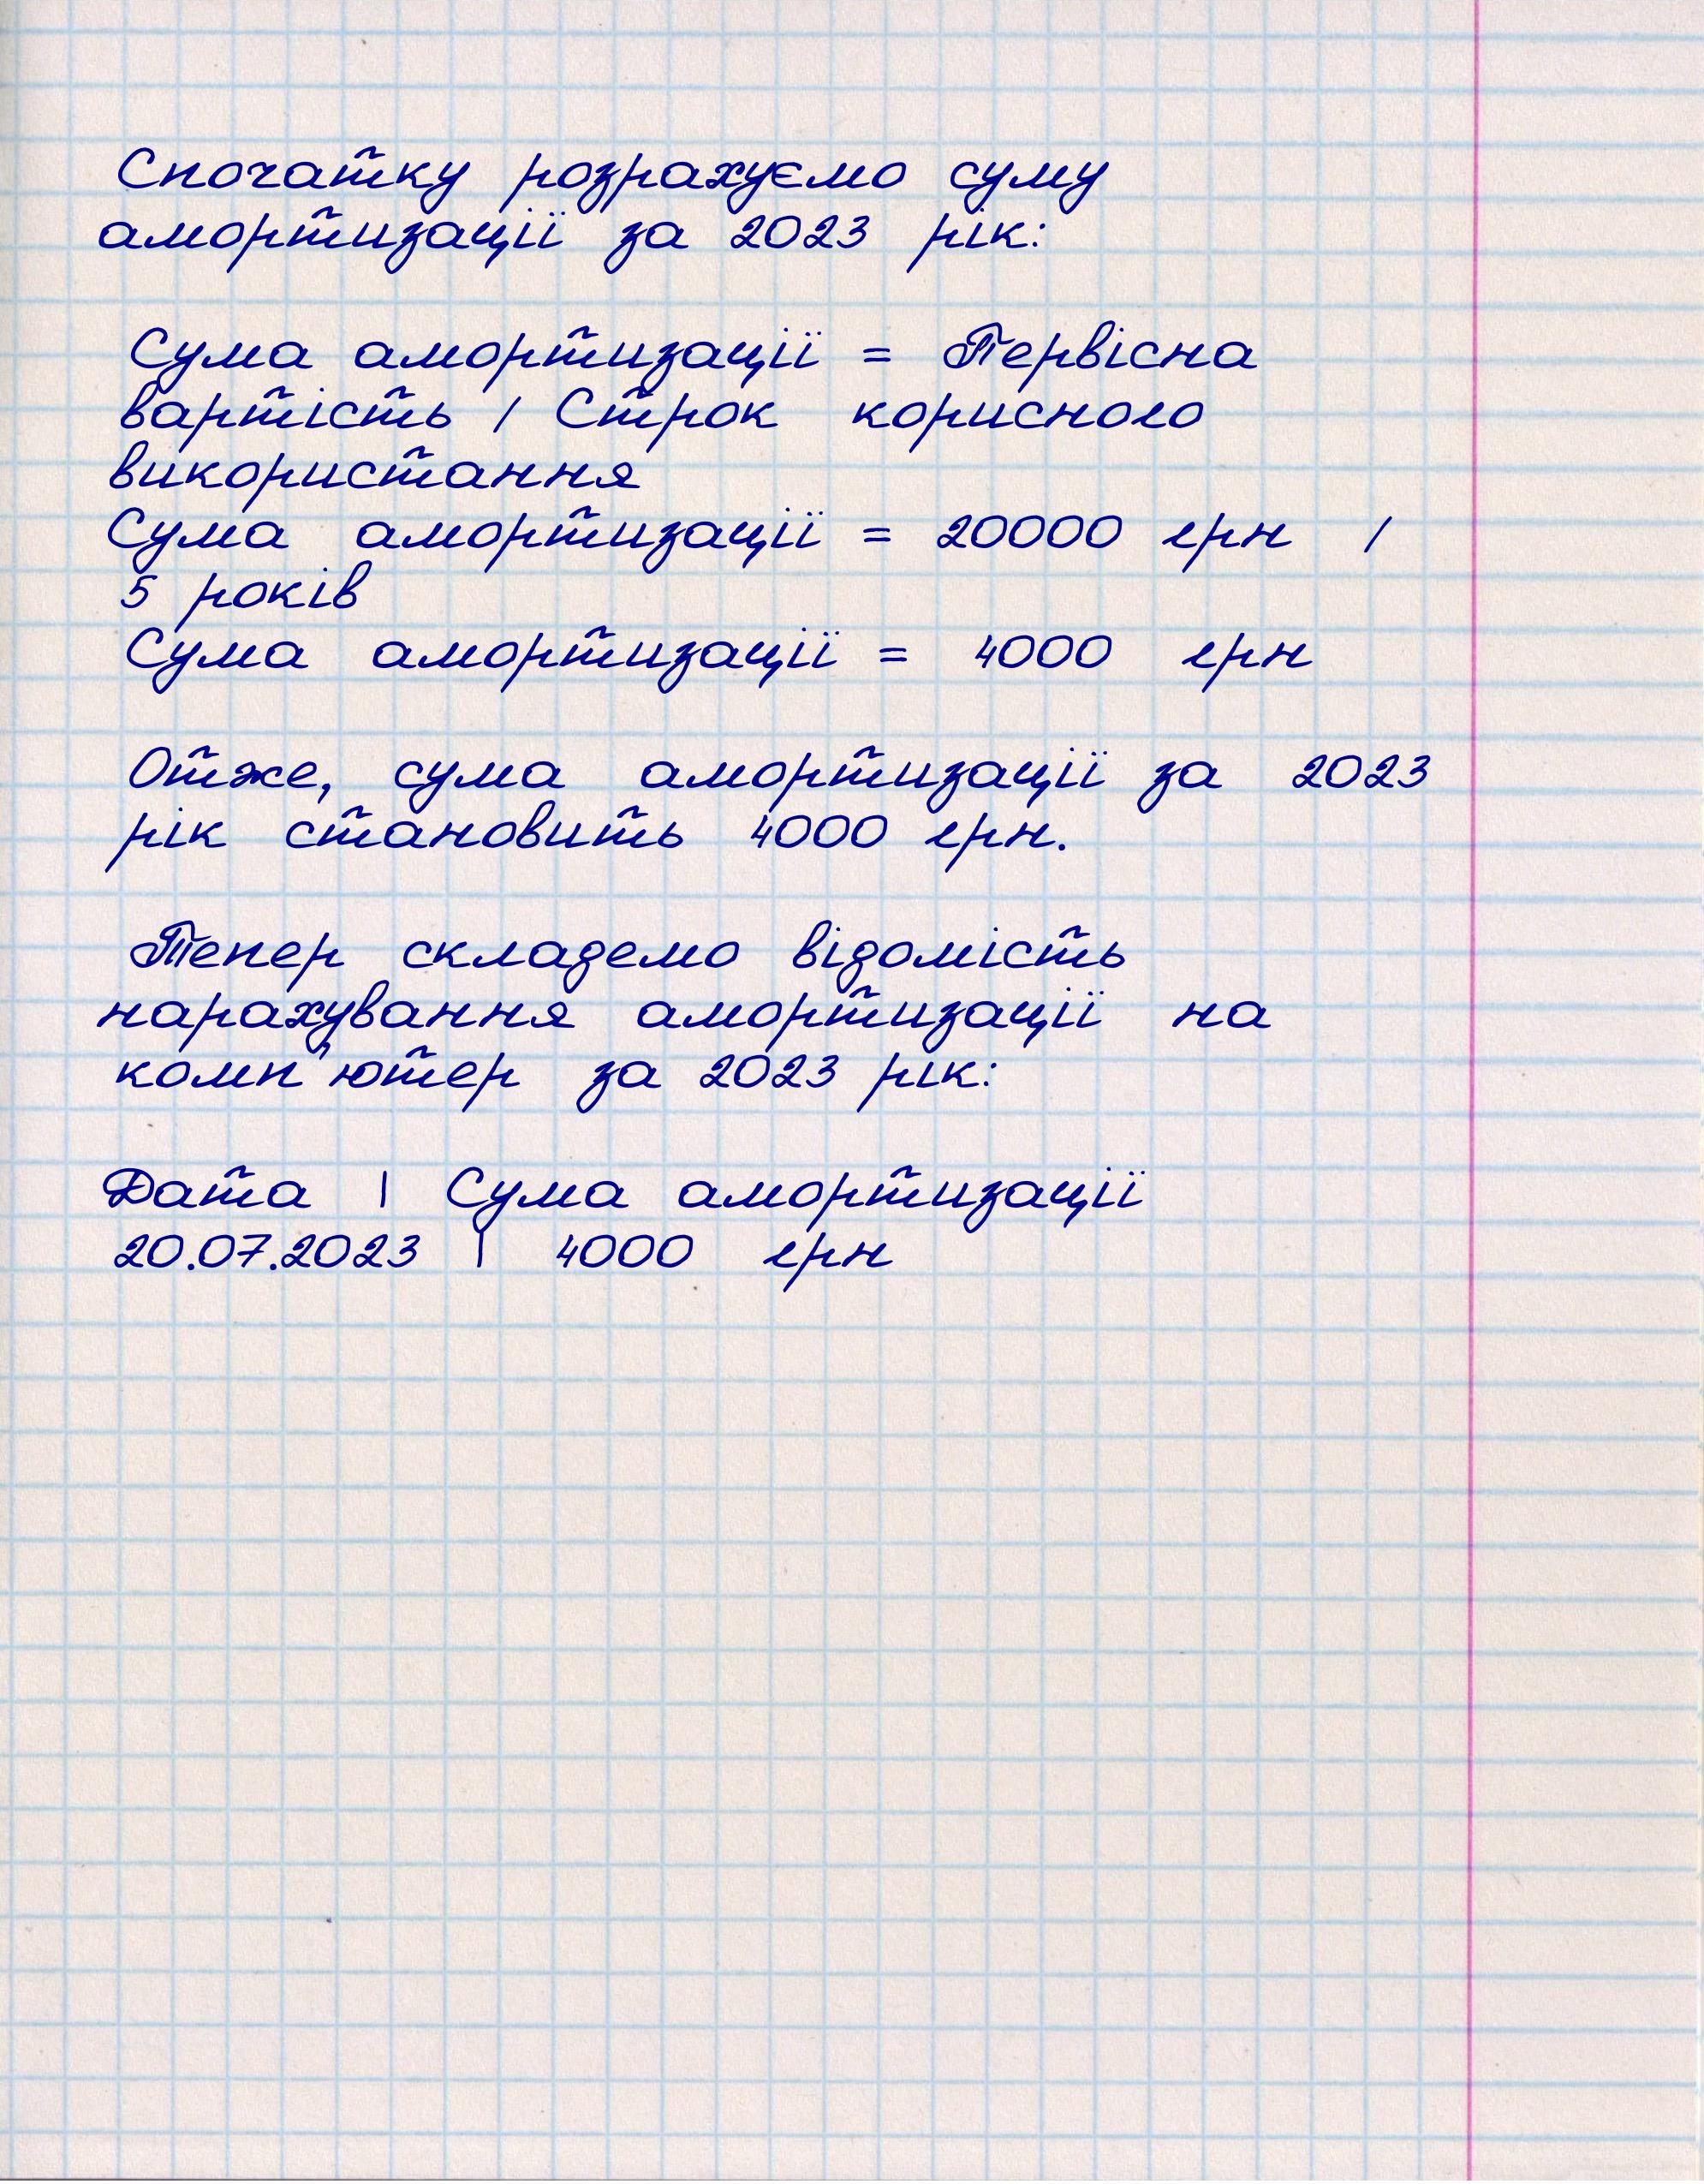 Спочатку розрахуємо суму
амортизації за 2023 рік:
Сума амортизації = Первісна
вартість / Строк корисного
використання
Сума амортизації = 20000 грн /
5 років
Сума амортизації = 4000 грн
Отже, сума амортизації за 2023
рік становить 4000 грн.
Тепер складемо відомість
нарахування амортизації на
комп'ютер за 2023 рік:
Дата | Сума амортизації
20.07.2023 | 4000 грн